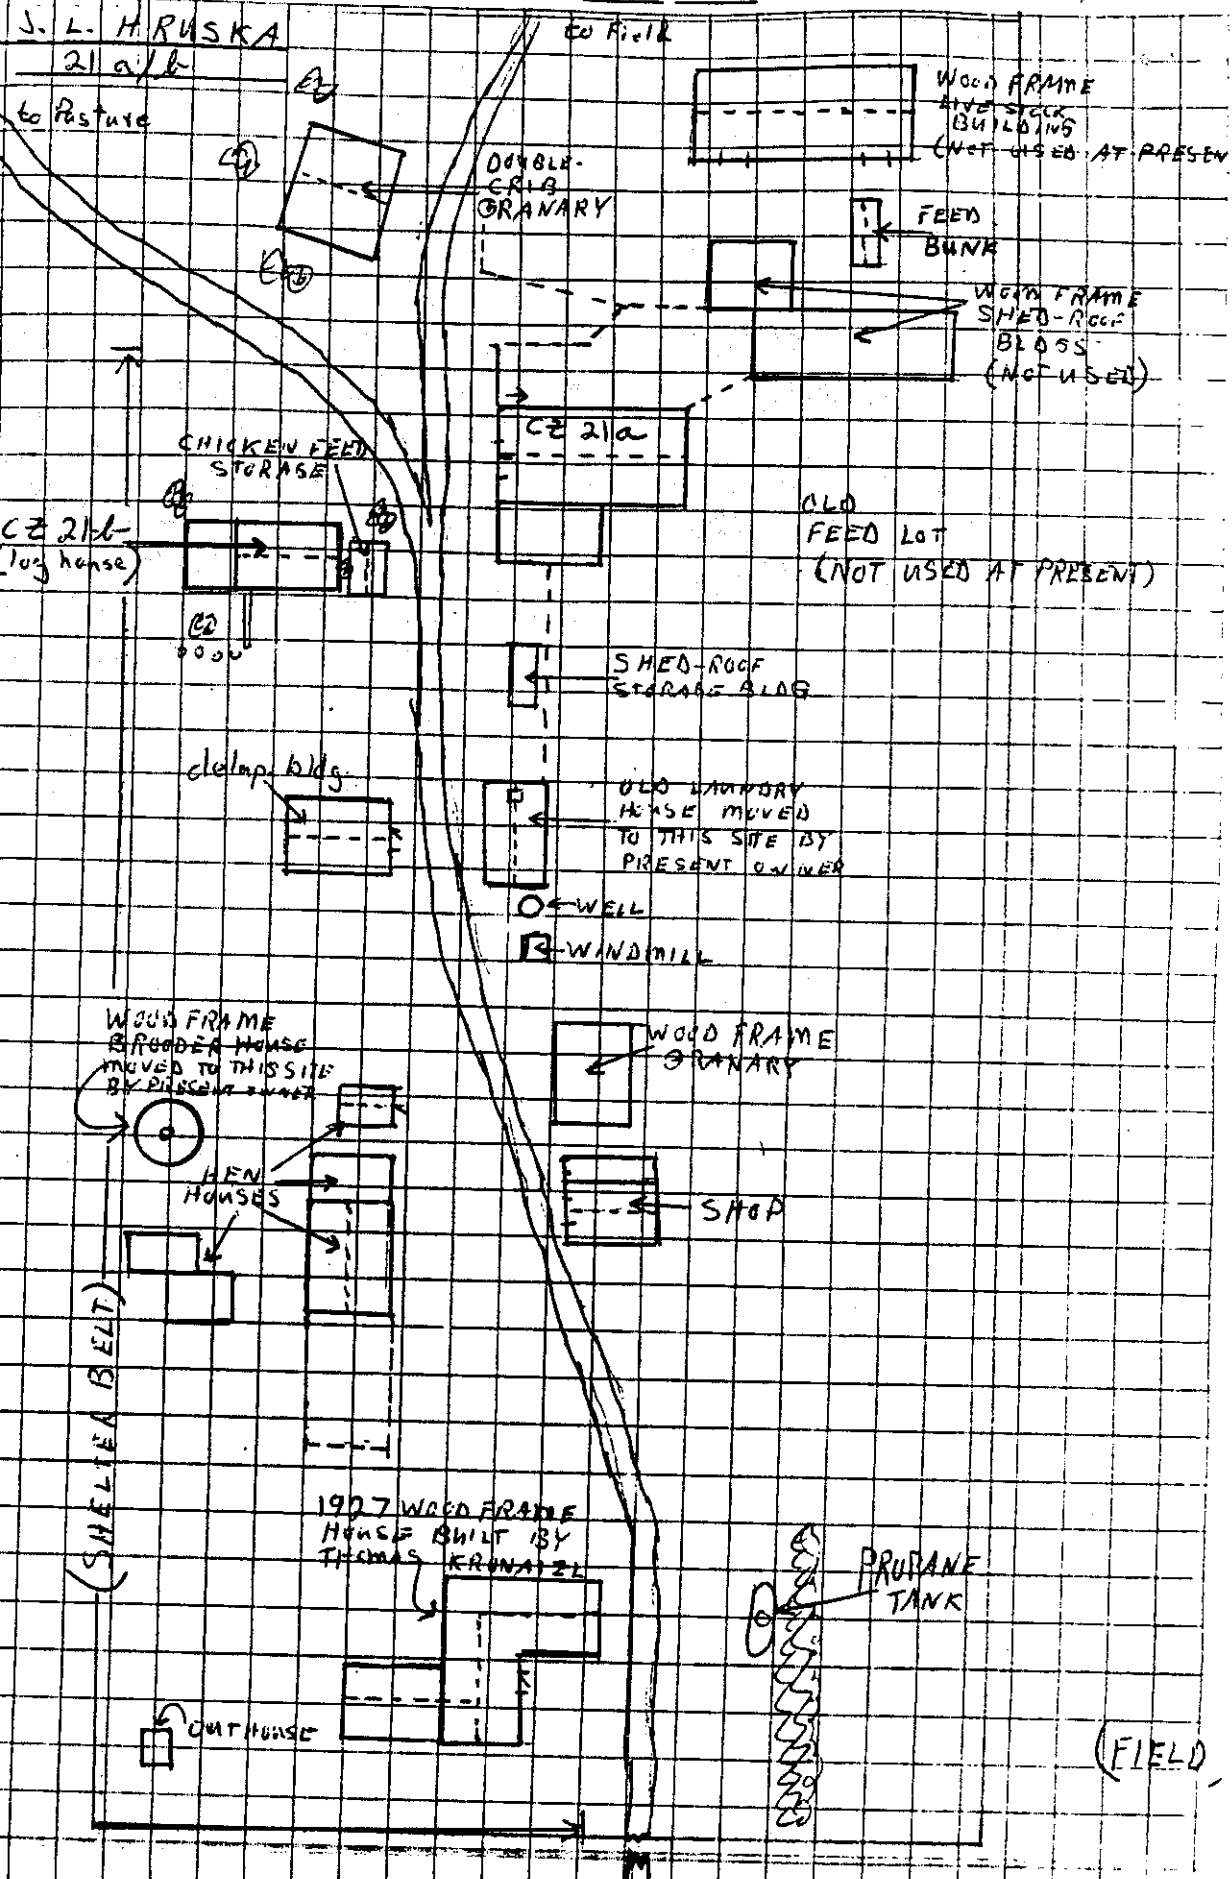 J. L. HRUSKA
21 a/b
to Pasture
to Field
WOOD FRAME
LIVE STOCK
BUILDING
(NOT USED AT PRESEN
DOUBLE-
CRIB
GRANARY
FEED
BUNK
WOOD FRAME
SHED-ROOF
BLDGS
(NOT USED)
CZ 21a
CHICKEN FEED
STORAGE
CZ 21-b
(log house)
OLD
FEED LOT
(NOT USED AT PRESENT)
SHED-ROOF
STORAGE BLDG
bldg.
OLD LAUNDRY
HOUSE MOVED
TO THIS SITE BY
PRESENT OWNER
WELL
WINDMILL
WOOD FRAME
BROODER HOUSE
MOVED TO THIS SITE
BY PRESENT OWNER
WOOD FRAME
GRANARY
HEN
HOUSES
SHOP
(SHELTER BELT)
1927 WOOD FRAME
HOUSE BUILT BY
THOMAS
PROPANE
TANK
OUTHOUSE
(FIELD,